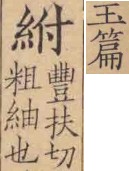 玉篇
紨
豐扶切
粗紬也